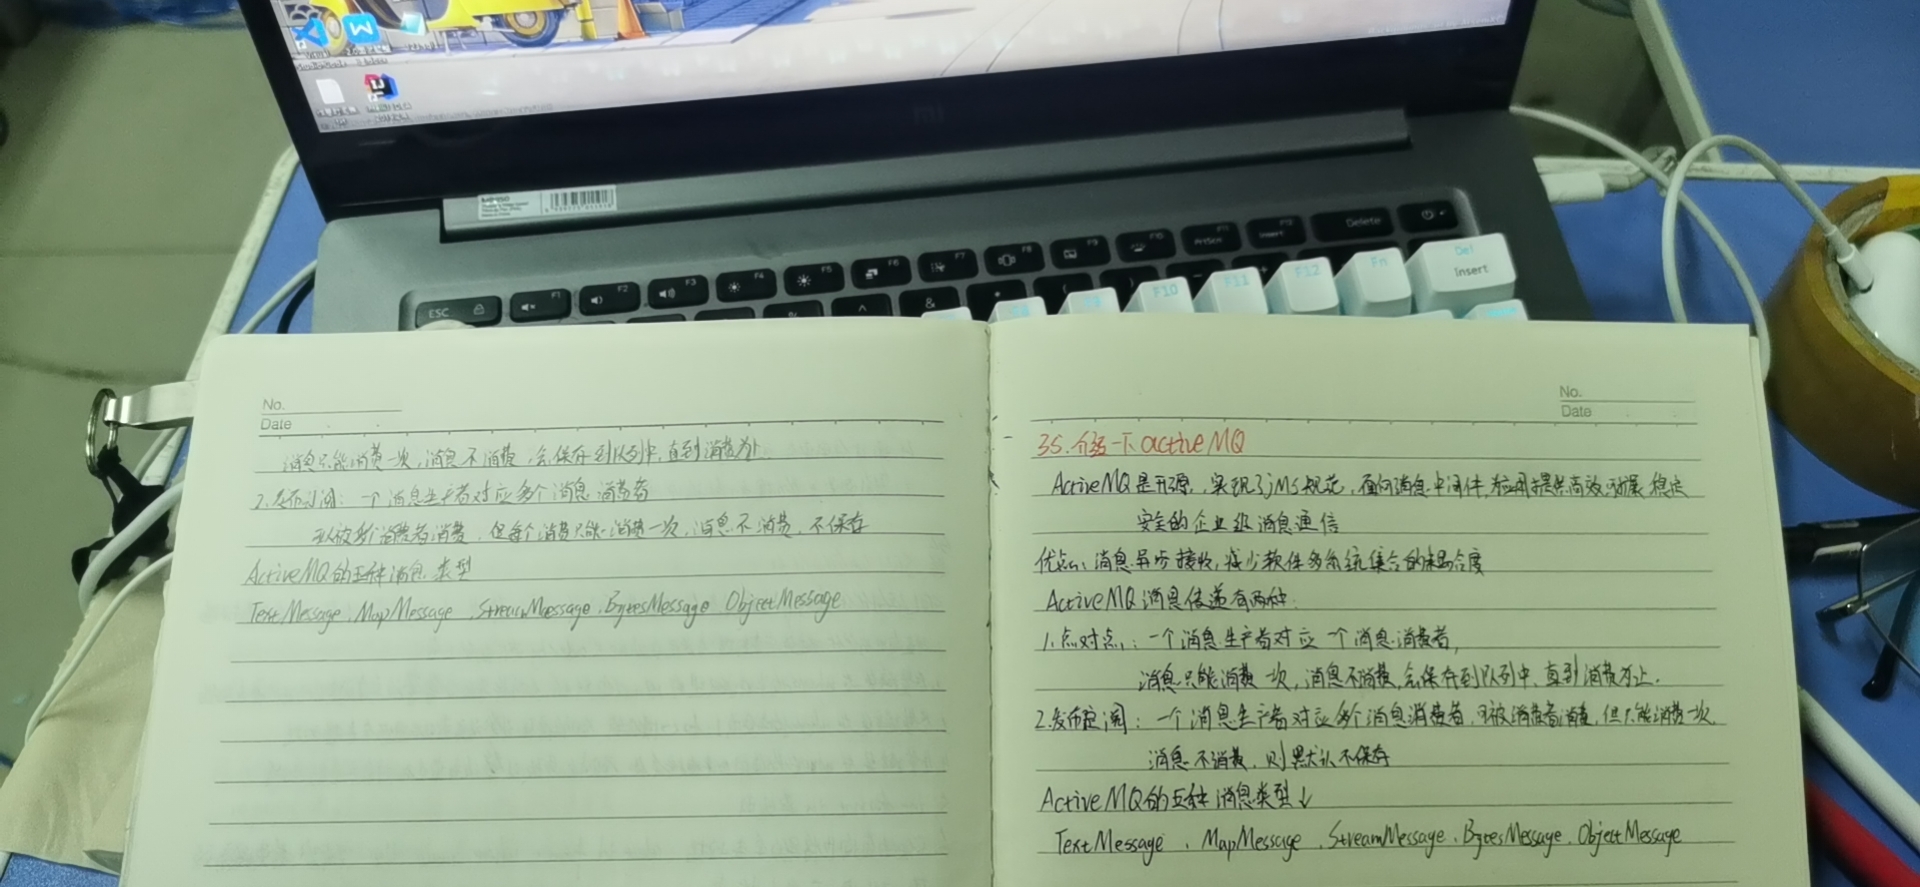 mi
ESC
F1
F2
F3
F4
F5
F6
F7
F8
F9
F10
PrtScn
Insert
Delete
&
F10
F11
F12
Fn
Del
Insert
No.
Date
消息只能消费一次,消息不消费,会保存到队列中,直到消费为止
2.发布订阅:一个消息生产者对应多个消息消费者
可以被多个消费者消费,但每个消费只能消费一次,消息不消费,不保存
ActiveMQ的五种消息类型
TextMessage、MapMessage、StreamMessage、BytesMessage ObjectMessage
No.
Date
35.介绍一下activeMQ
ActiveMQ是开源,实现了JMS规范,面向消息中间件,为应用提供高效、可扩展、稳定
安全的企业级消息通信
优点:消息异步接收,减少软件多系统集合的耦合度
ActiveMQ消息传递有两种:
1.点对点:一个消息生产者对应一个消息消费者,
消息只能消费一次,消息不消费,会保存到队列中,直到消费为止.
2.发布订阅:一个消息生产者对应多个消息消费者,可被消费者消费,但只能消费一次,
消息不消费,则默认不保存
ActiveMQ的五种消息类型↓
TextMessage、MapMessage、StreamMessage、BytesMessage、ObjectMessage